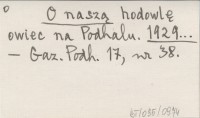 O naszą hodowlę
owiec na Podhalu. 1929...
— Gaz. Podh. 17, nr 38.